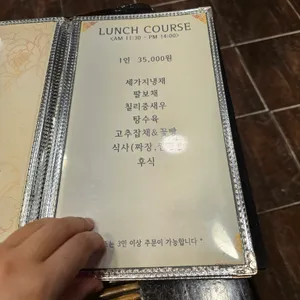 LUNCH COURSE
<AM 11:30 - PM 14:00>
1인 35,000원
세가지냉채
팔보채
칠리중새우
탕수육
고추잡채&꽃빵
식사(짜장,
후식
는 3인 이상 주문이 가능합니다 *